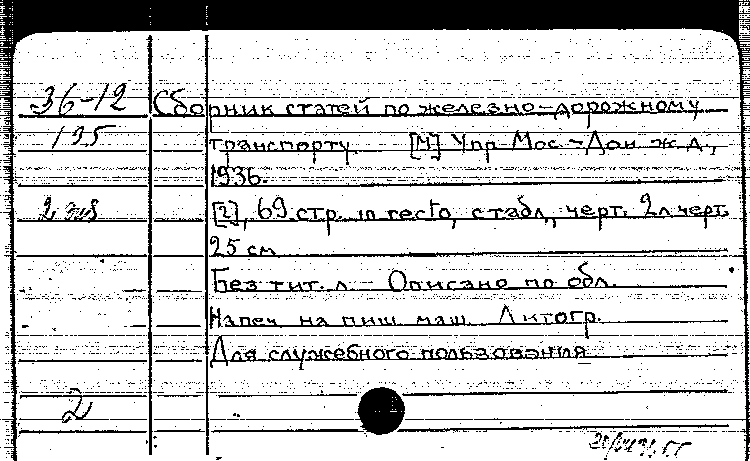 36-12 Сборник статей по железно-дорожному
135 транспорту. [М] Упр. Мос.-Дон. ж.д.,
1936.
2 экз [2], 69 стр. in recto, с табл., черт. 2л черт.
25 см
Без тит. л. — Описано по обл.
Напеч. на пиш. маш. Литогр.
Для служебного пользования
2